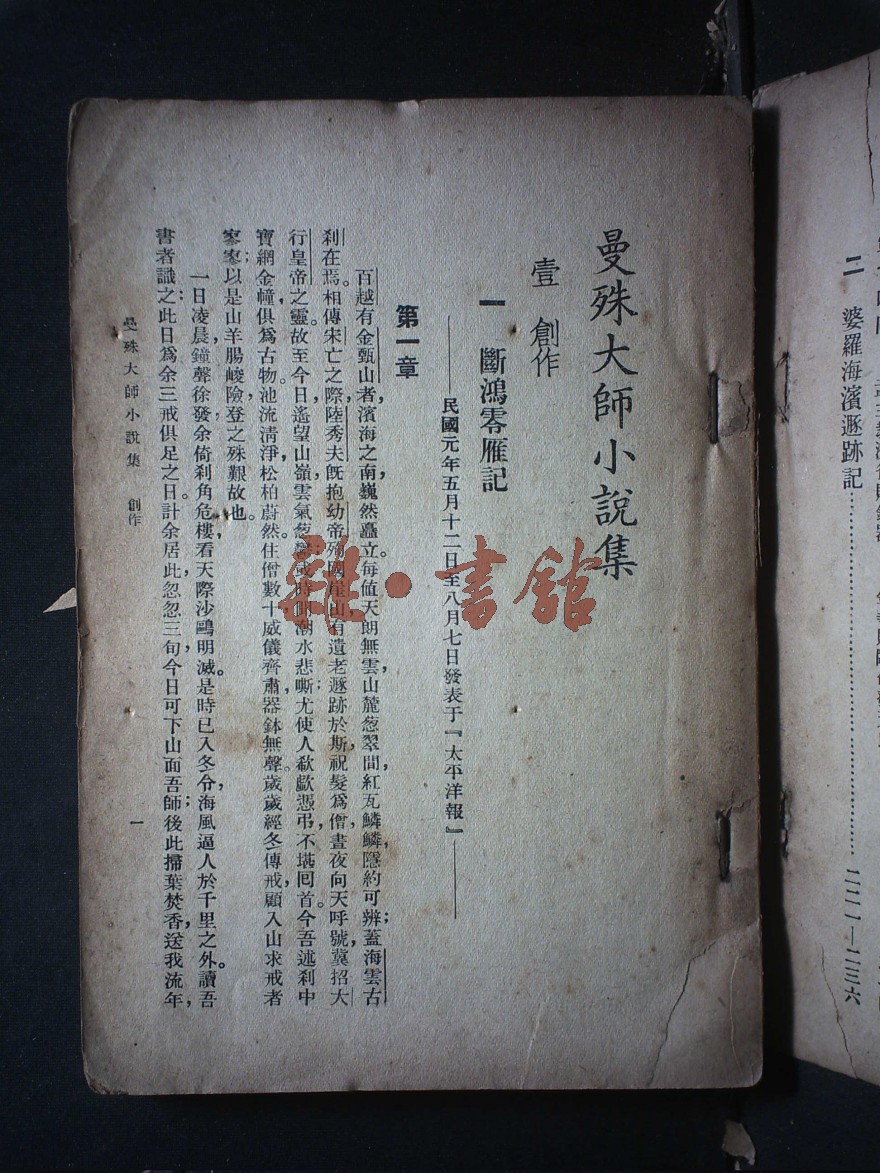 二 婆羅海濱遯跡記⋯⋯⋯⋯⋯⋯⋯⋯二二一—二三六
曼殊大師小說集
壹 創作
一 斷鴻零雁記
——民國元年五月十二日至八月七日發表于『太平洋報』——
第一章
百越有金甄山者,濱海之南,巍然矗立。每值天朗無雲,山麓葱翠間,紅瓦鱗鱗,隱約可辨;蓋海雲古
刹在焉。相傳宋亡之際,陸秀夫旣抱幼帝殉國崖山,有遺老遯跡於斯,祝髮爲僧,晝夜向天呼號,冀招大
行皇帝之靈。故至今日,遙望山嶺,雲氣葱鬱;或時聞潮水悲嘶,尤使人欷歔憑弔,不堪囘首。今吾述刹中
寶網金幢,俱爲古物。池流清淨,松柏蔚然。住僧數十,威儀齊肅,器鉢無聲。歲歲經冬傳戒,顧入山求戒者
寥寥;以是山羊腸峻險,登之殊艱故也。
一日凌晨,鐘聲徐發,余倚刹角危樓,看天際沙鷗明滅。是時已入冬令,海風逼人於千里之外。讀吾
書者識之:此日爲余三戒俱足之日。計余居此忽忽三旬,今日可下山面吾師;後此掃葉焚香,送我流年,
曼殊大師小說集 創作
一
雜·書館